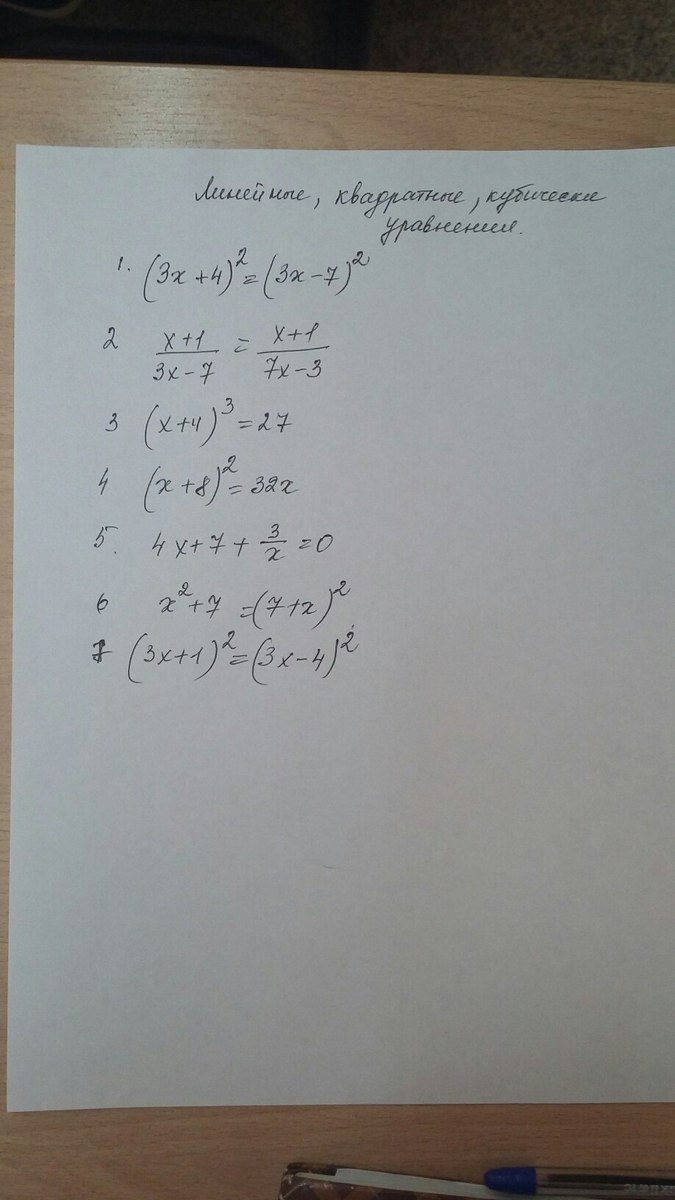 Линейные, квадратные, кубически
уравнения.
1. (3x+4)²=(3x-7)²
2 (x+1)/(3x-7) = (x+1)/(7x-3)
3 (x+4)³=27
4 (x+8)²=32x
5. 4x+7+3/x=0
6 x²+7=(7+x)²
7 (3x+1)²=(3x-4)²